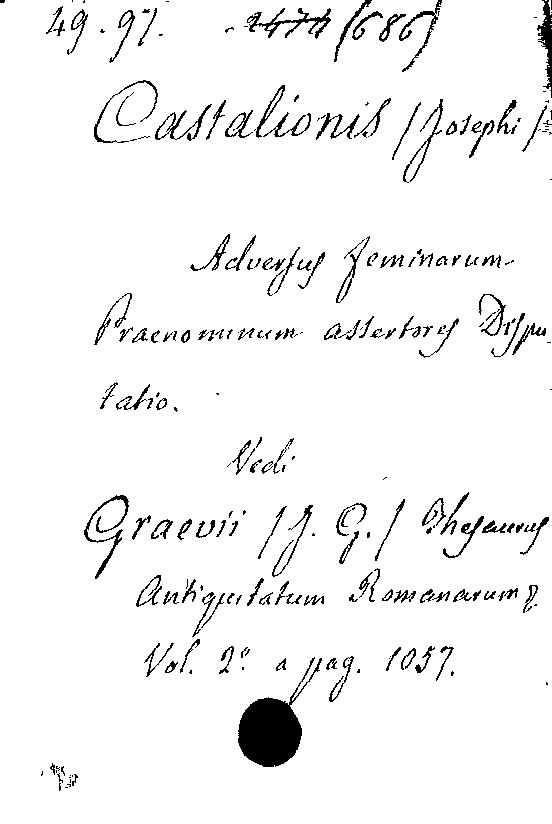 49.97. 2474 (686)
Castalionis (Josephi)
Adversus feminarum
Praenominum assertores Dispu
tatio.
Vedi
Graevii (J. G.) Thesaurus
Antiquitatum Romanarum
Vol. 2.º a pag. 1057.